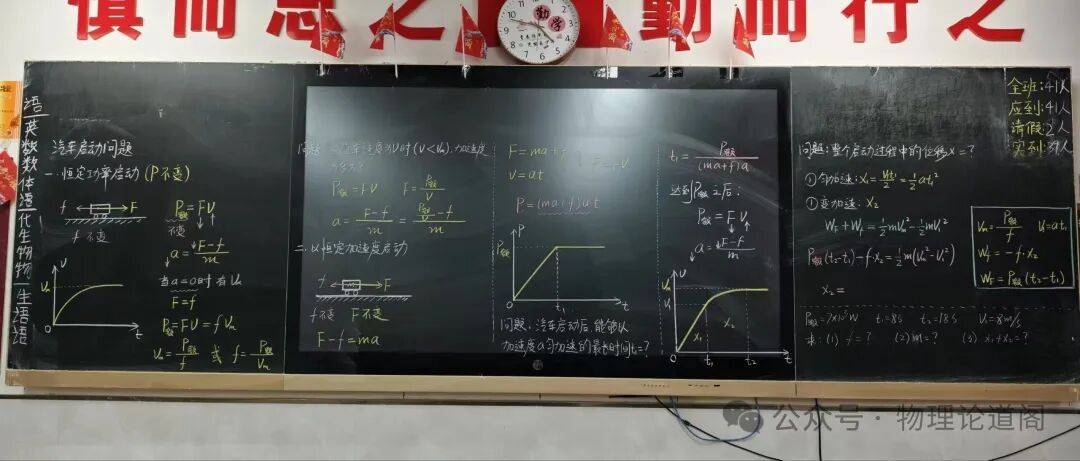 慎而思之 勤而行之
勤学
语英数数体湾代生物物一生语语
汽车启动问题
一.恒定功率启动(P不变)
f F
f 不变
P额=FV
不变
a=F-f/m
当a=0时有Vm
F=f
P额=FV=fVm
Vm=P额/f 或 f=P额/Vm
V
Vm
O t
P额=FV f=P额/V
a=F-f/m=P额/V-f/m
二.以恒定加速度启动
f F
f不变 F不变
F-f=ma
F=ma+f
V=at
P=(ma+f)at
P
P额
O t₁ t
问题.汽车启动后,能够以
加速度a匀加速的最长时间t₁=?
t₁=P额/(ma+f)a
达到P额之后:
P额=FV
a=F-f/m
V
Vm
V₁
X₁ X₂
O t₁ t₂ t
问题:整个启动过程中的位移x=?
①匀加速:x₁=V₁t₁/2=½at₁²
②变加速:X₂
WF+Wf=½mVm²-½mV₁²
P额(t₂-t₁)-f·x₂=½m(Vm²-V₁²)
x₂=
Vm=P额/f V₁=at₁
Wf=-f·x₂
WF=P额(t₂-t₁)
t₁=8s t₂=18s V₁=8m/s
求:(1) f=? (2) m=? (3) x₁+x₂=?
全班:41人
应到:41人
请假:2人
实到:39人
公众号·物理论道阁